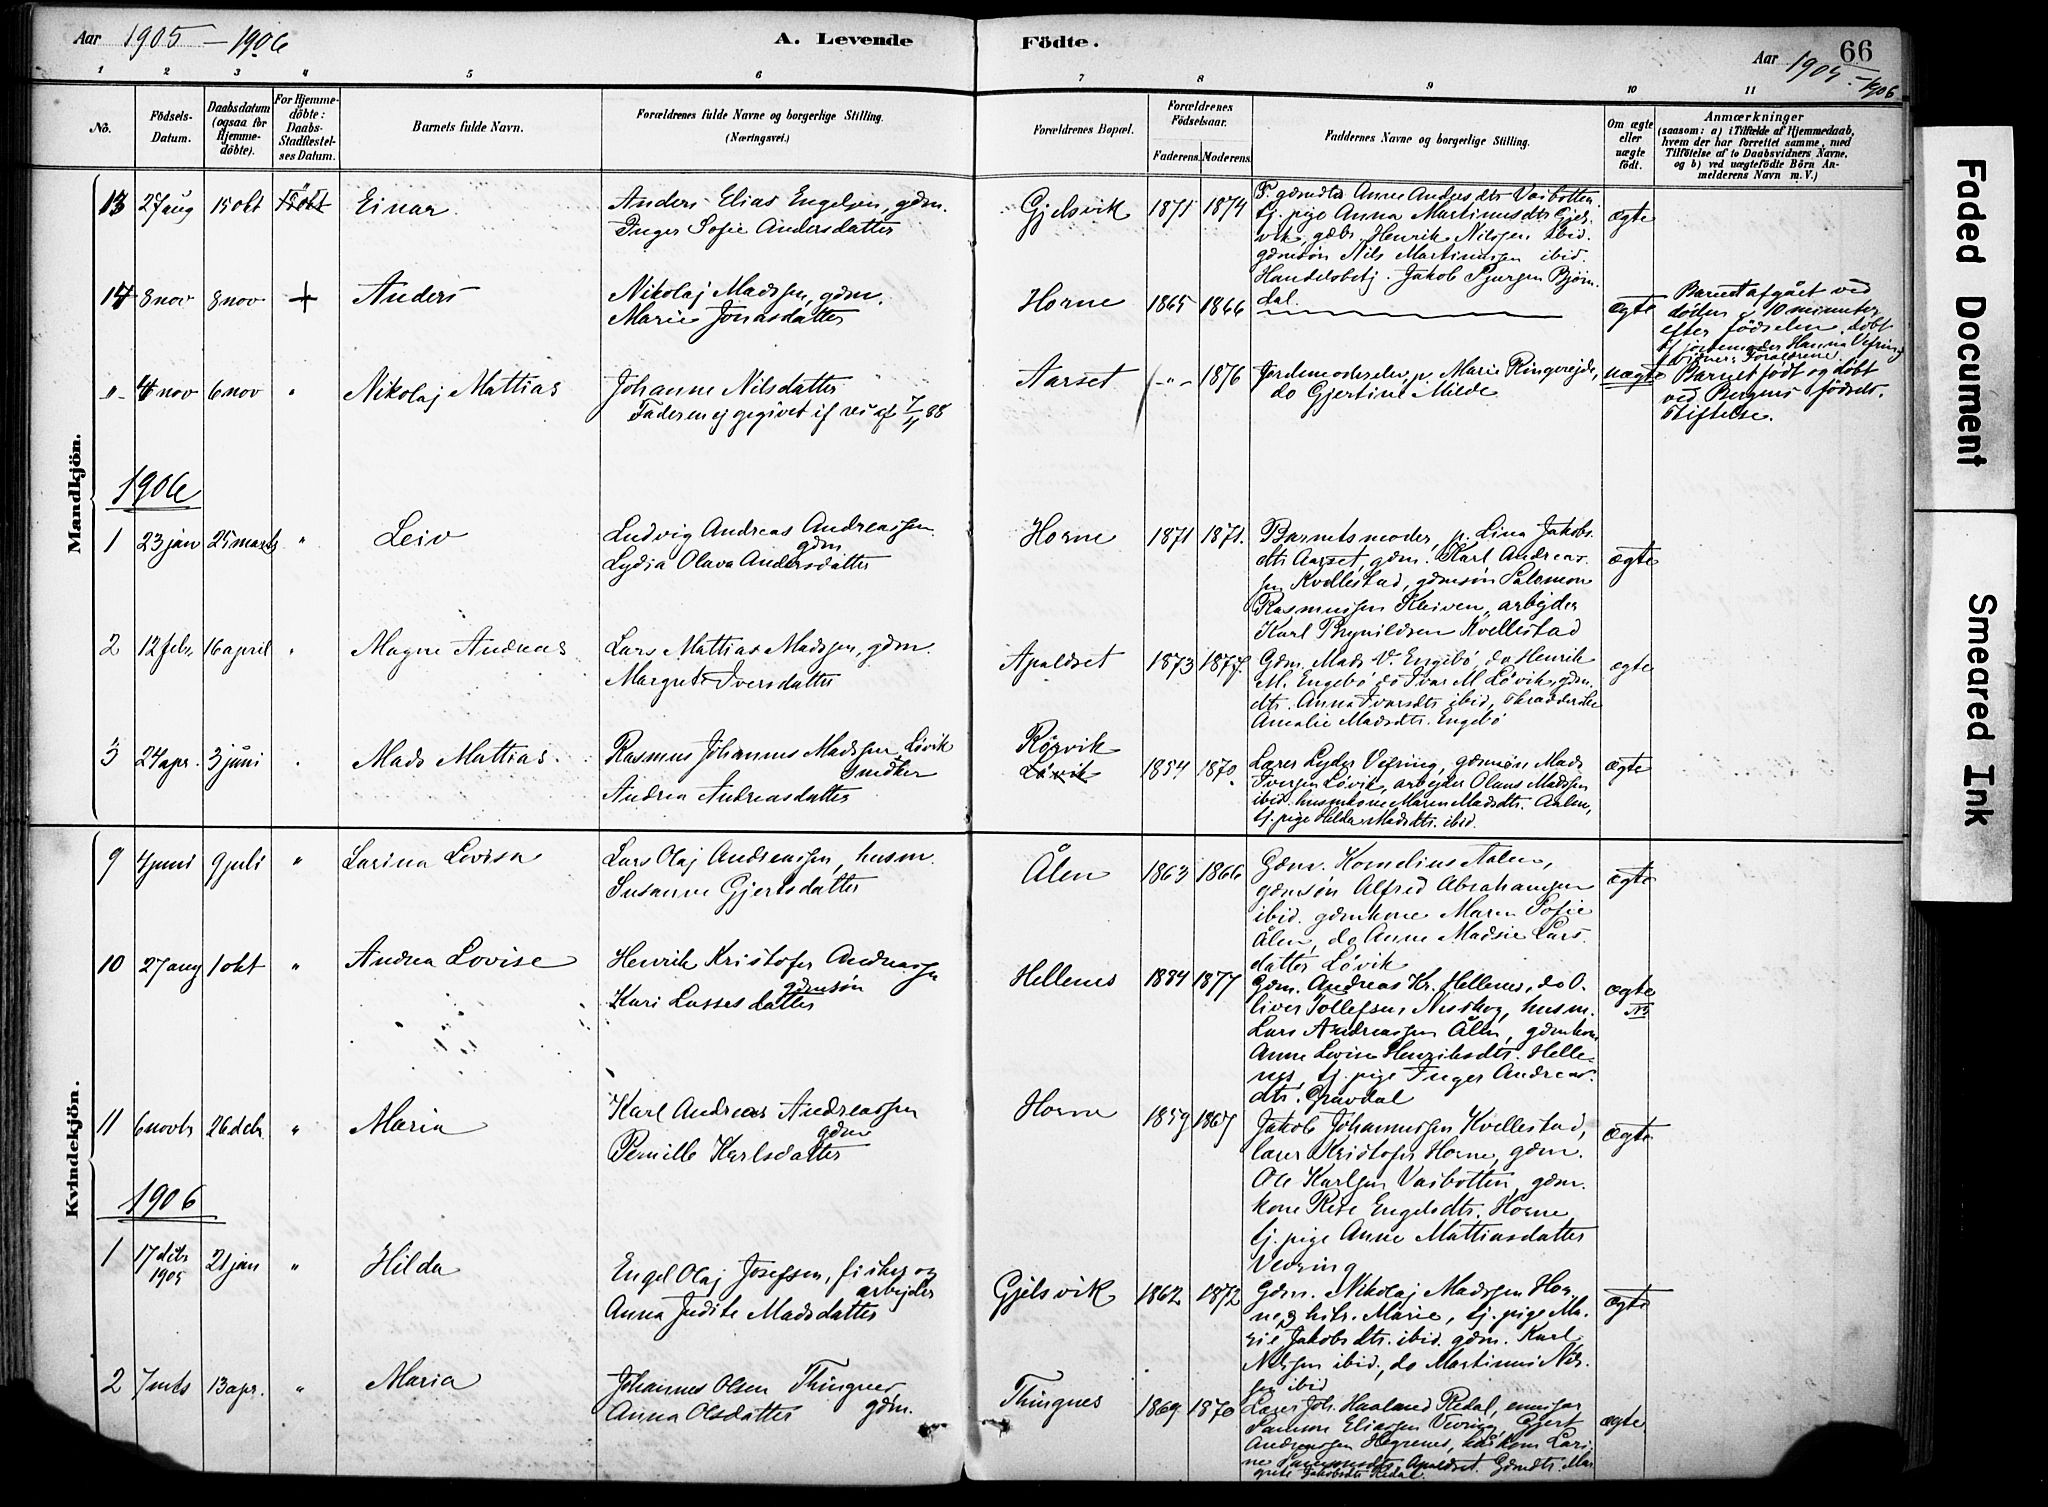 Aar 1905 – 1906
A. Levende
Födte.
Aar 1905 – 1906
66
1 2 3 4 5 6 7 8 9 10 11
No.
Födsels-
Datum.
Daabsdatum
(ogsaa for
Hjemme-
döbte).
For Hjemme-
döbte:
Daabs-
Stadfæstel-
ses Datum.
Barnets fulde Navn.
Forældrenes fulde Navne og borgerlige Stilling.
(Næringsvei.)
Forældrenes Bopæl.
Forældrenes
Födselsaar.
Faderens. Moderens.
Faddernes Navne og borgerlige Stilling.
Om ægte
eller
uægte
födt.
Anmærkninger
(saasom: a) i Tilfælde af Hjemmedaab,
hvem der har forrettet samme, med
Tilföielse af to Daabsvidners Navne,
og b) ved uægtefödte Börn An-
melderens Navn m. V.)
Mandkjön.
13 27 aug 15 okt 15 okt Einar.
Anders Elias Engelsen, gdm.
Inger Sofie Andersdatter
Gjelsvik 1871 1874
F. gdmdtr Anne Andersdtr Vasbotten,
tj. pige Anna Martinusdtr Gjels
vik, gdbr. Henrik Nilssen ibid.
gdmsön Nils Martinussen ibid.
Handelsbetj. Jakob Bjørn
dal.
ægte
14 8 nov 8 nov + Anders
Nikolaj Madssen, gdm.
Marie Jonasdatter
Horne 1865 1866
ægte
Barnet afgået ved
døden 10 minuter
efter födselen, döbt
af jordemoder Hanna Vefring
Vidner: Forældrene.
-"- 4 nov 6 nov " Nikolaj Mattias
Johanne Nilsdatter
Faderen ej
Aarset -"- 1876
Jordemoderelev p. Marie Ringereide,
do Gjertine Milde
uægte
Barnet födt og döbt
ved Bergens födsels-
stiftelse.
1906
1 23 jan 25 marts " Leiv
Ludvig Andreas Andreassen
gdm
Lydia Olava Andersdatter
Horne 1871 1871.
Barnets moder, p. Lina Jakobs
dtr Aarset, gdm. Karl Andreas
sen Kvellestad, gdmsøn Salamon
Rasmussen Kleiven, arbejder
Karl Brynildsen Kvellestad
ægte
2 12 febr. 16 april " Magne Andreas
Lars Mattias Madssen, gdm.
Margrete Iversdatter
Apaldset 1873 1877.
Gdm. Mads V. Engebö, do Henrik
M. Engebö do Ivar M. Løvik, gdm.
dtr. Anna Ivarsdtr ibid,
Amalie Madsdtr. Engebö
ægte
3 24 apr. 3 juni " Mads Mattias
Rasmus Johannes Madssen Løvik
snedker
Andrea Andreasdatter
Rørvik
Løvik
1854 1870
Lærer Lyder Vefring, gdmsøn Mads
Iversen Løvik, arbejder Olaus Madssen
ibid. husmkone Maren Madsdtr. Aalen,
tj. pige Hilda Madsdtr. ibid.
ægte
Kvindekjön.
9 4 juni 9 juli " Larina Lovisa
Lars Olaj Andreassen, husm.
Susanne Gjertsdatter
Ålen 1863 1866
Gdm. Kornelius Aalen,
gdmsön Alfred Abrahamsen
ibid. gdmkone Maren Sofie
Ålen, do Anne Madsie Lars
datter Løvik
ægte
10 27 aug 1 okt " Andrea Lovise
Henrik Kristofer Andreassen
gdmsøn
Kari Lassesdatter
Hellenes 1884 1877
Gdm. Andreas Kr. Hellenes, do O-
liver Tollefsen Nistkog, husm.
Lars Andreassen Ålen, gdmkone
Anne Lovise Henriksdtr. Helle-
nes, tj. pige Inger Andreas-
dtr. Gravdal
ægte
11 6 novb 26 deb " Maria
Karl Andreas Andreassen
gdm
Pernille Karlsdatter
Horne 1859 1867
Jakob Johannessen Kvellestad,
lærer Kristofer Horne, gdm.
Ole Karlsen Vasbotten, gdm.
kone Engelsdtr. Horne
tj. pige Anne Mattiasdatter
Vevring
ægte
1906
1 17 debr 1905 21 jan " Hilda
Engel Olaj Josefsen, fisker og
arbejder
Anna Judite Madsdatter
Gjelsvik 1862 1872
Gdm. Nikolaj Madssen Hor-
ne, & hstr. Marie, tj. pige Ma-
rie Jakobsdtr. ibid. gdm. Karl
Nilssen ibid., do Martinus Nils-
sen ibid
ægte
2 7 mts 13 apr. " Maria
Johannes Olsen Thingnes
gdm.
Anna Olsdatter
Thingnes 1869 1870
Lærer Joh. Haaland Redal,
Samson Eliassen Vevring, Gjert
Andreassen Hegrenes, Lari
ne Apaldset. Gdmdtr. Mar
grete Jakobsdtr Redal.
ægte
Faded Document
Smeared Ink